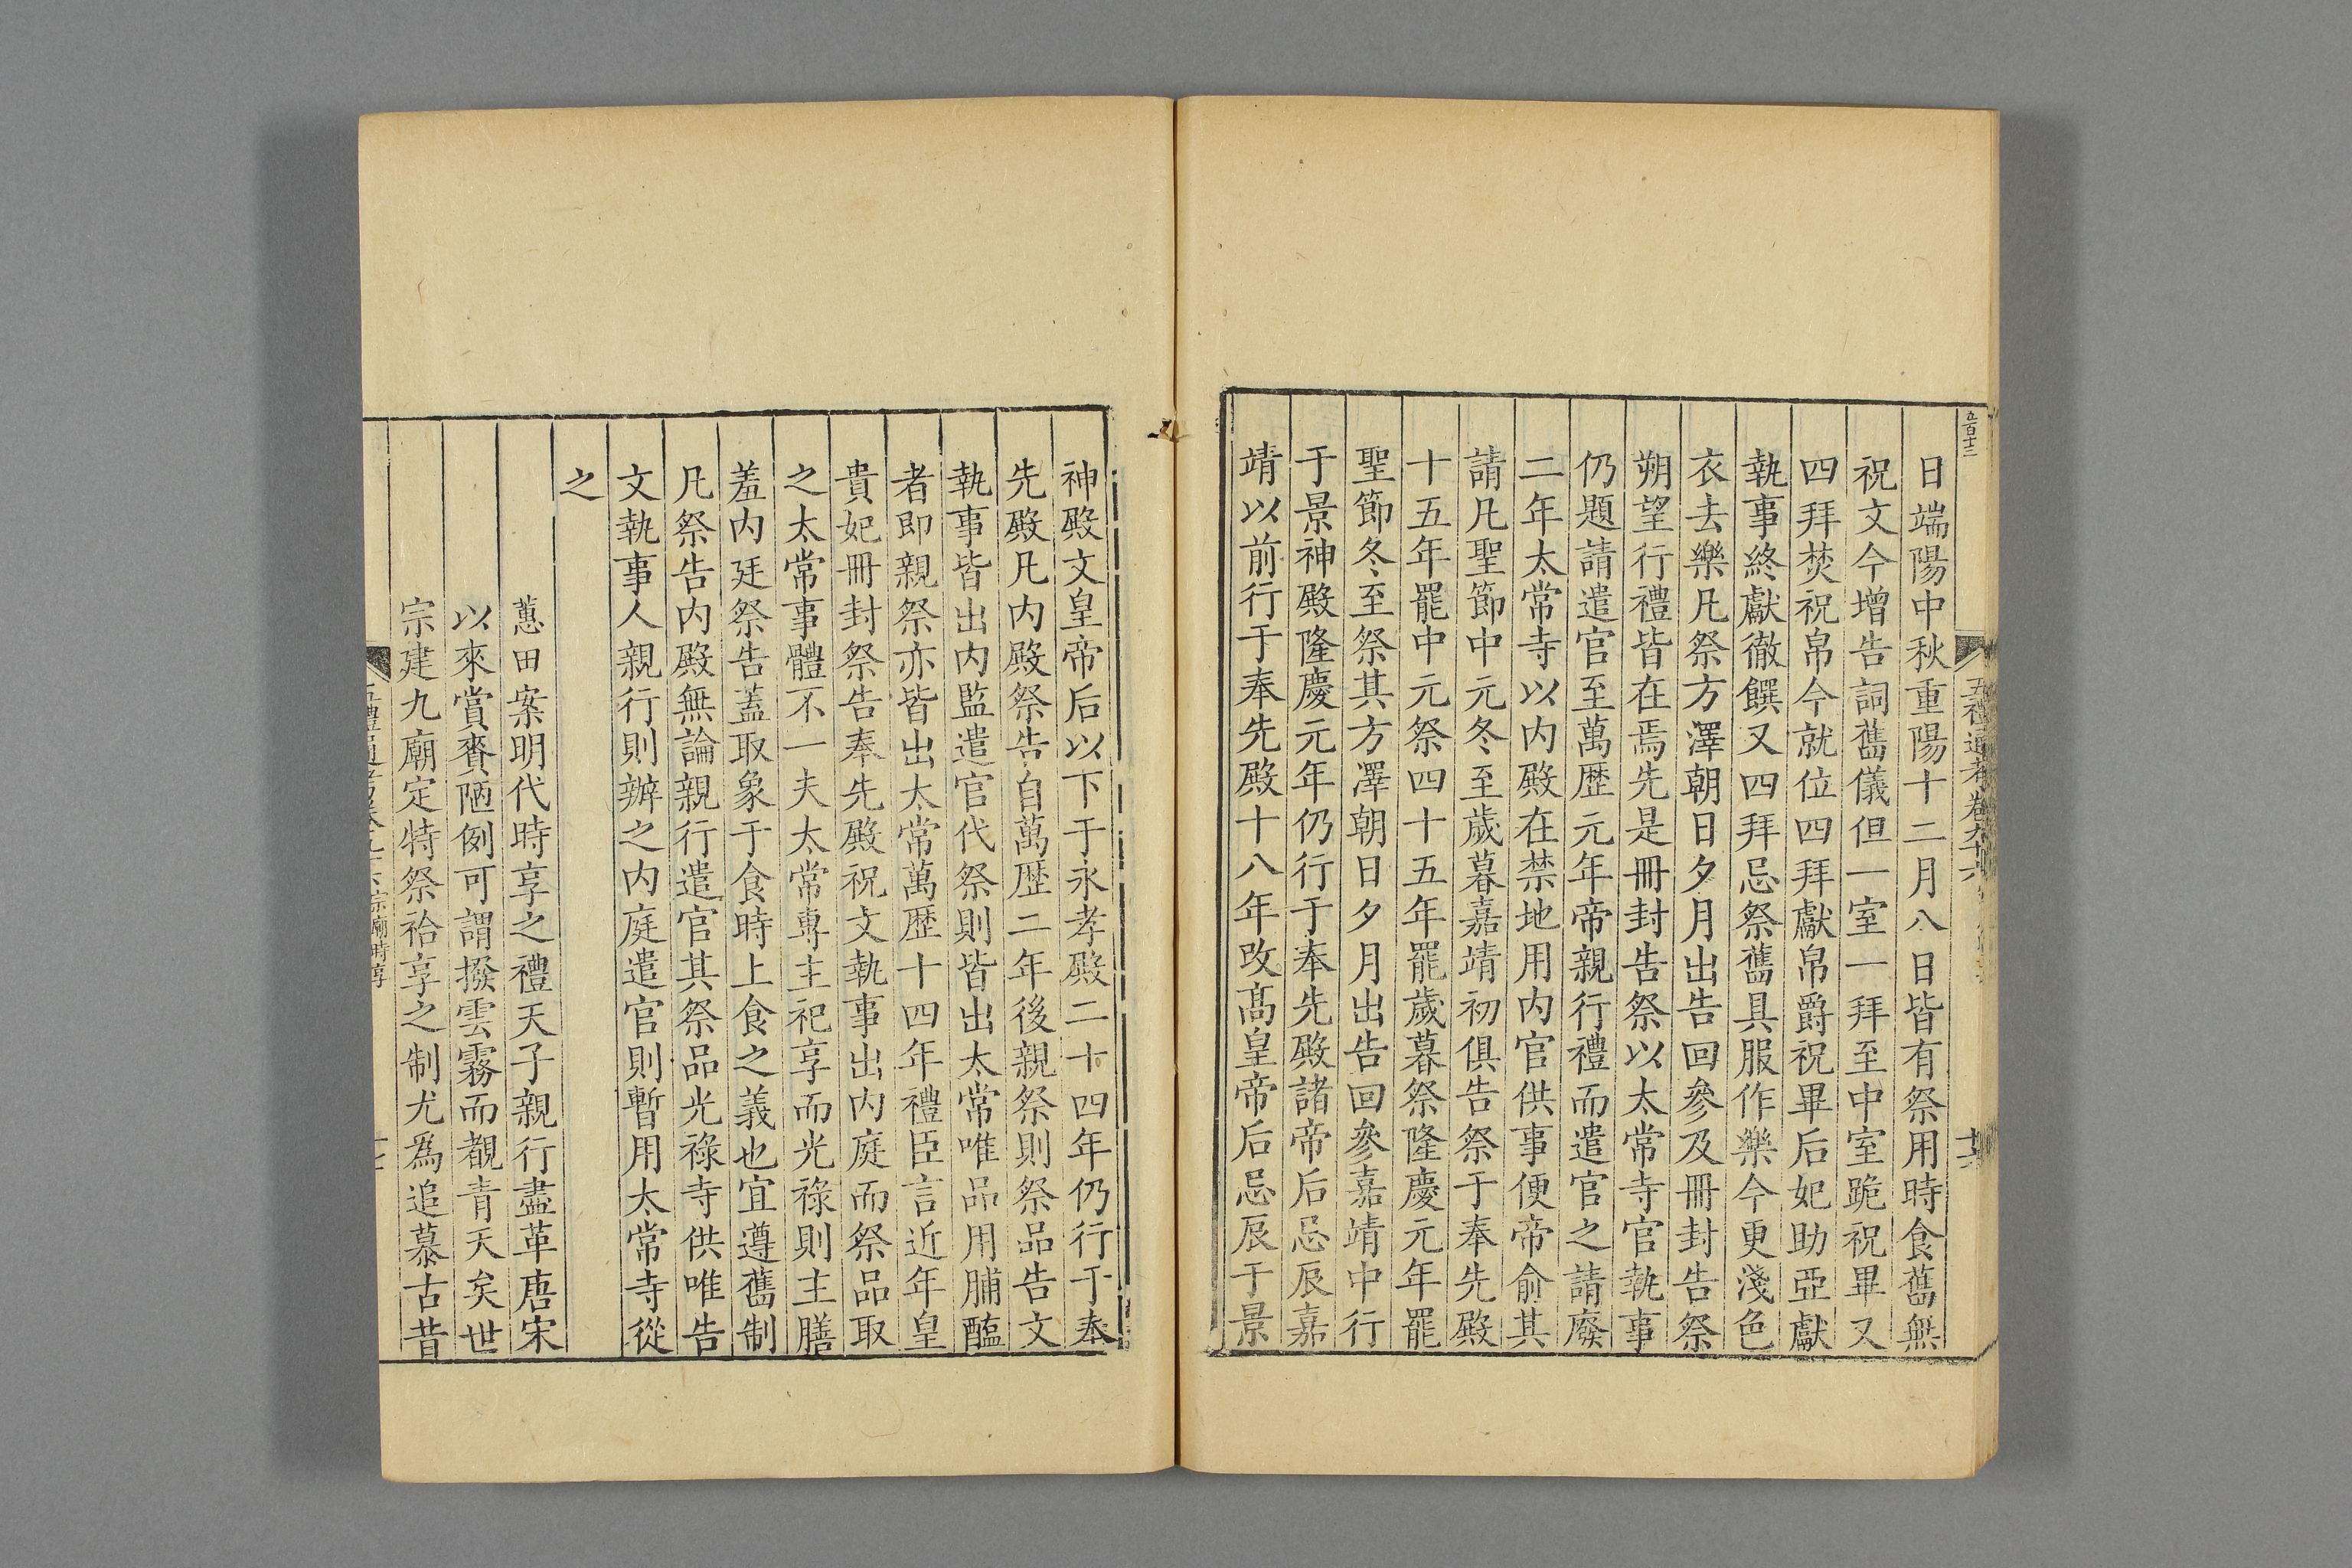 五百十三
五禮通考卷九十六
十六
日端陽中秋重陽十二月八日皆有祭用時食舊無
祝文今增告詞舊儀但一室一拜至中室跪祝畢又
四拜焚祝帛今就位四拜獻帛爵祝畢后妃助亞獻
執事終獻徹饌又四拜忌祭舊具服作樂今更淺色
衣去樂凡祭方澤朝日夕月出告回參及冊封告祭
朔望行禮皆在焉先是冊封告祭以太常寺官執事
仍題請遣官至萬歷元年帝親行禮而遣官之請廢
二年太常寺以内殿在禁地用内官供事便帝俞其
請凡聖節中元冬至歲暮嘉靖初俱告祭于奉先殿
十五年罷中元祭四十五年罷歲暮祭隆慶元年罷
聖節冬至祭其方澤朝日夕月出告回參嘉靖中行
于景神殿隆慶元年仍行于奉先殿諸帝后忌辰嘉
靖以前行于奉先殿十八年改髙皇帝后忌辰于景
神殿文皇帝后以下于永孝殿二十四年仍行于奉
先殿凡内殿祭告自萬歷二年後親祭則祭品告文
執事皆出内監遣官代祭則皆出太常唯品用脯醢
者即親祭亦皆出太常萬歷十四年禮臣言近年皇
貴妃冊封祭告奉先殿祝文執事出内庭而祭品取
之太常事體不一夫太常專主祀享而光祿則主膳
羞内廷祭告蓋取象于食時上食之義也宜遵舊制
凡祭告内殿無論親行遣官其祭品光祿寺供唯告
文執事人親行則辦之内庭遣官則暫用太常寺從
之
蕙田案明代時享之禮天子親行盡革唐宋
以來賞賚陋例可謂撥雲霧而覩青天矣世
宗建九廟定特祭祫享之制尤爲追慕古昔
宗廟時享